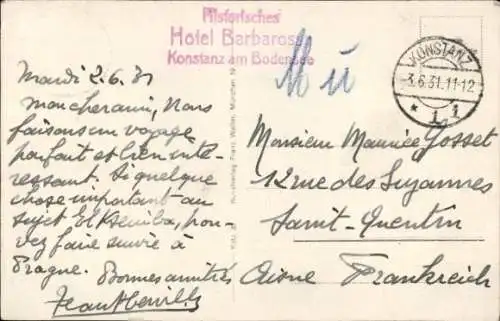 Historisches
Hotel Barbarossa
Konstanz am Bodensee
Mü
KONSTANZ
-3.6.31.11-12
* 1 i
Mardi 2.6.31
Mon cher ami, Nous
faisons un voyage
parfait et bien inté-
ressant. Si quelque
chose important au
sujet El Kseniba, pou-
vez faire suivre à
Prague.
Bonnes amitiés
Monsieur Maurice Gosset
12 rue des Suzannes
Saint-Quentin
Aisne Frankreich